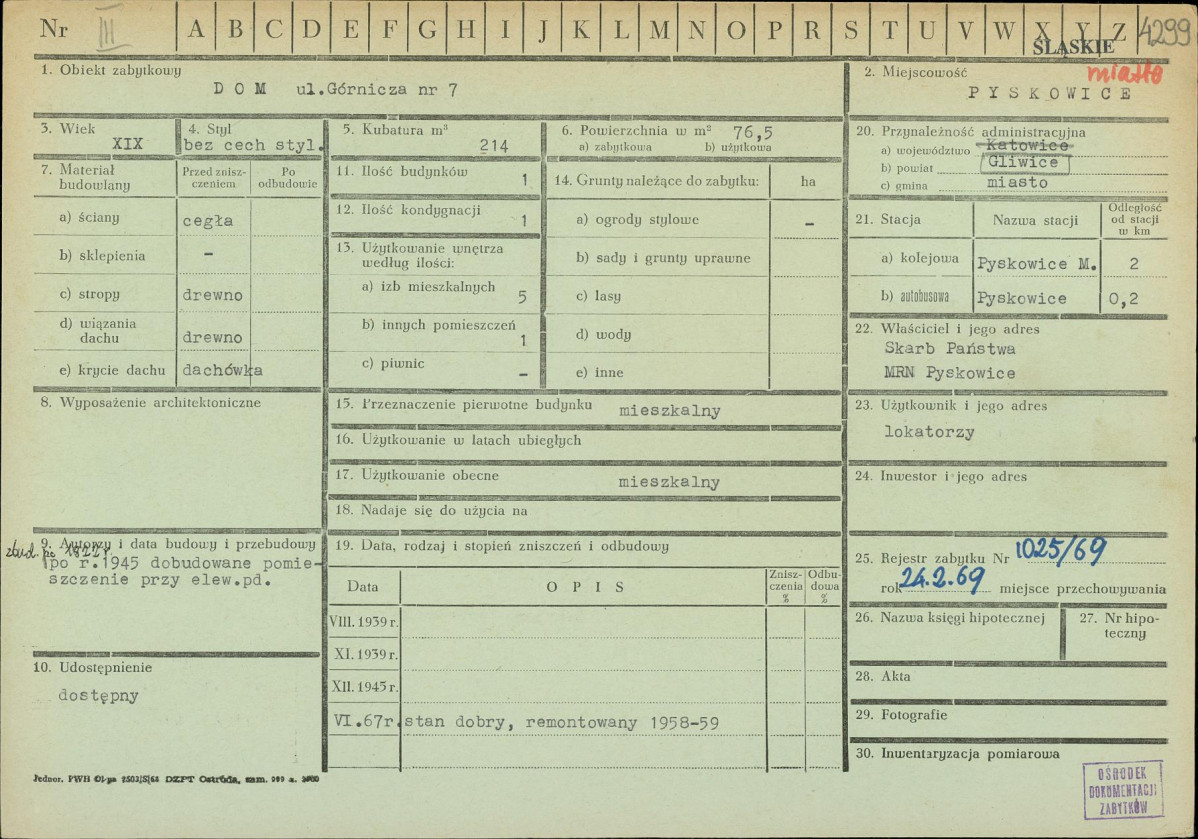 Nr III A B C D E F G H I J K L M N O P R S T U V W X Y Z 4299
ŚLĄSKIE
1. Obiekt zabytkowy
DOM ul.Górnicza nr 7
2. Miejscowość miasto
PYSKOWICE
3. Wiek
XIX
4. Styl
bez cech styl.
5. Kubatura m³
214
6. Powierzchnia w m² 76,5
a) zabytkowa b) użytkowa
7. Materiał budowlany
Przed znisz-
czeniem
Po
odbudowie
a) ściany cegła
b) sklepienia –
c) stropy drewno
d) wiązania
dachu drewno
e) krycie dachu dachówka
8. Wyposażenie architektoniczne
9. Autorzy i data budowy i przebudowy
zbud. po 1822 r.
po r.1945 dobudowane pomie-
szczenie przy elew.pd.
10. Udostępnienie
dostępny
11. Ilość budynków
1
12. Ilość kondygnacji
1
13. Użytkowanie wnętrza
według ilości:
a) izb mieszkalnych
5
b) innych pomieszczeń
1
c) piwnic
–
14. Grunty należące do zabytku: ha
a) ogrody stylowe –
b) sady i grunty uprawne
c) lasy
d) wody
e) inne
15. Przeznaczenie pierwotne budynku mieszkalny
16. Użytkowanie w latach ubiegłych
17. Użytkowanie obecne mieszkalny
18. Nadaje się do użycia na
19. Data, rodzaj i stopień zniszczeń i odbudowy
Data OPIS
Znisz-
czenia
%
Odbu-
dowa
%
VIII. 1939 r.
XI. 1939 r.
XII. 1945 r.
VI.67r. stan dobry, remontowany 1958-59
20. Przynależność administracyjna
a) województwo Katowice
b) powiat Gliwice
c) gmina miasto
21. Stacja Nazwa stacji
Odległość
od stacji
w km
a) kolejowa Pyskowice M. 2
b) autobusowa Pyskowice 0,2
22. Właściciel i jego adres
Skarb Państwa
MRN Pyskowice
23. Użytkownik i jego adres
lokatorzy
24. Inwestor i jego adres
25. Rejestr zabytku Nr 1025/69
rok 24.2.69 miejsce przechowywania
26. Nazwa księgi hipotecznej
27. Nr hipo-
teczny
28. Akta
29. Fotografie
30. Inwentaryzacja pomiarowa
Jednor. PWH DZPT Ostróda, zam.
OŚRODEK
DOKUMENTACJI
ZABYTKÓW